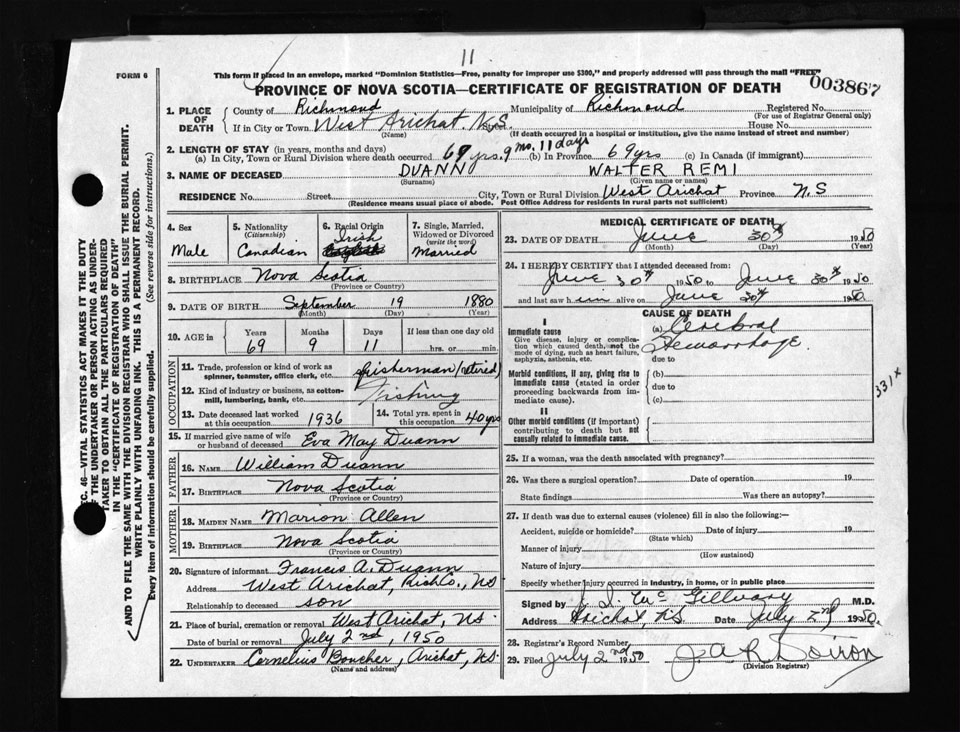 11
FORM 6
This form if placed in an envelope, marked "Dominion Statistics—Free, penalty for improper use $300," and properly addressed will pass through the mail "FREE"
PROVINCE OF NOVA SCOTIA—CERTIFICATE OF REGISTRATION OF DEATH
003867
1. PLACE OF DEATH
County of Richmond Municipality of Richmond Registered No.
(For use of Registrar General only)
If in City or Town West Arichat N.S. Street House No.
(Name) (If death occurred in a hospital or institution, give the name instead of street and number)
2. LENGTH OF STAY (in years, months and days)
(a) In City, Town or Rural Division where death occurred 69 yrs. 9 mos. 11 days (b) In Province 69 yrs (c) In Canada (if immigrant)
3. NAME OF DECEASED DUANN WALTER REMI
(Surname) (Given name or names)
RESIDENCE No. Street City, Town or Rural Division West Arichat Province N.S
(Residence means usual place of abode. Post Office Address for residents in rural parts not sufficient)
4. Sex Male
5. Nationality (Citizenship) Canadian
6. Racial Origin Irish English
7. Single, Married, Widowed or Divorced (write the word) Married
8. BIRTHPLACE Nova Scotia
(Province or Country)
9. DATE OF BIRTH September 19 1880
(Month) (Day) (Year)
10. AGE in Years Months Days If less than one day old
69 9 11 hrs. or min.
OCCUPATION
11. Trade, profession or kind of work as spinner, teamster, office clerk, etc. fisherman (retired)
12. Kind of industry or business, as cotton-mill, lumbering, bank, etc. Fishing
13. Date deceased last worked at this occupation 1936
14. Total yrs. spent in this occupation 40 yrs
15. If married give name of wife or husband of deceased Eva May Duann
FATHER
16. NAME William Duann
17. BIRTHPLACE Nova Scotia
(Province or Country)
MOTHER
18. MAIDEN NAME Marion Allen
19. BIRTHPLACE Nova Scotia
(Province or Country)
20. Signature of informant Francis A. Duann
Address West Arichat, Rich Co., N.S
Relationship to deceased son
21. Place of burial, cremation or removal West Arichat, N.S.
Date of burial or removal July 2nd, 1950
22. UNDERTAKER Cornelius Boucher, Arichat, N.S.
(Name and address)
MEDICAL CERTIFICATE OF DEATH
23. DATE OF DEATH June 30th 1950
(Month) (Day) (Year)
24. I HEREBY CERTIFY that I attended deceased from:
June 30th 1950 to June 30th 1950
and last saw him alive on June 30th 1950.
CAUSE OF DEATH
I
Immediate cause
Give disease, injury or complication which caused death, not the mode of dying, such as heart failure, asphyxia, asthenia, etc.
(a) Cerebral Hemorrhage
due to
Morbid conditions, if any, giving rise to immediate cause (stated in order proceeding backwards from immediate cause).
(b)
due to
(c)
331x
II
Other morbid conditions (if important) contributing to death but not causally related to immediate cause.
25. If a woman, was the death associated with pregnancy?
26. Was there a surgical operation? Date of operation 19
State findings Was there an autopsy?
27. If death was due to external causes (violence) fill in also the following:—
Accident, suicide or homicide? Date of injury 19
(State which)
Manner of injury
(How sustained)
Nature of injury
Specify whether injury occurred in industry, in home, or in public place
Signed by J. I. McGillvary M.D.
Address Arichat N.S. Date July 2nd 1950.
28. Registrar's Record Number
29. Filed July 2nd 1950 J A R Doiron
(Division Registrar)
C. 46—VITAL STATISTICS ACT MAKES IT THE DUTY
OF THE UNDERTAKER OR PERSON ACTING AS UNDER-
TAKER TO OBTAIN ALL THE PARTICULARS REQUIRED
IN THE "CERTIFICATE OF REGISTRATION OF DEATH"
AND TO FILE THE SAME WITH THE DIVISION REGISTRAR WHO SHALL ISSUE THE BURIAL PERMIT.
WRITE PLAINLY WITH UNFADING INK. THIS IS A PERMANENT RECORD.
Every item of information should be carefully supplied. (See reverse side for instructions.)